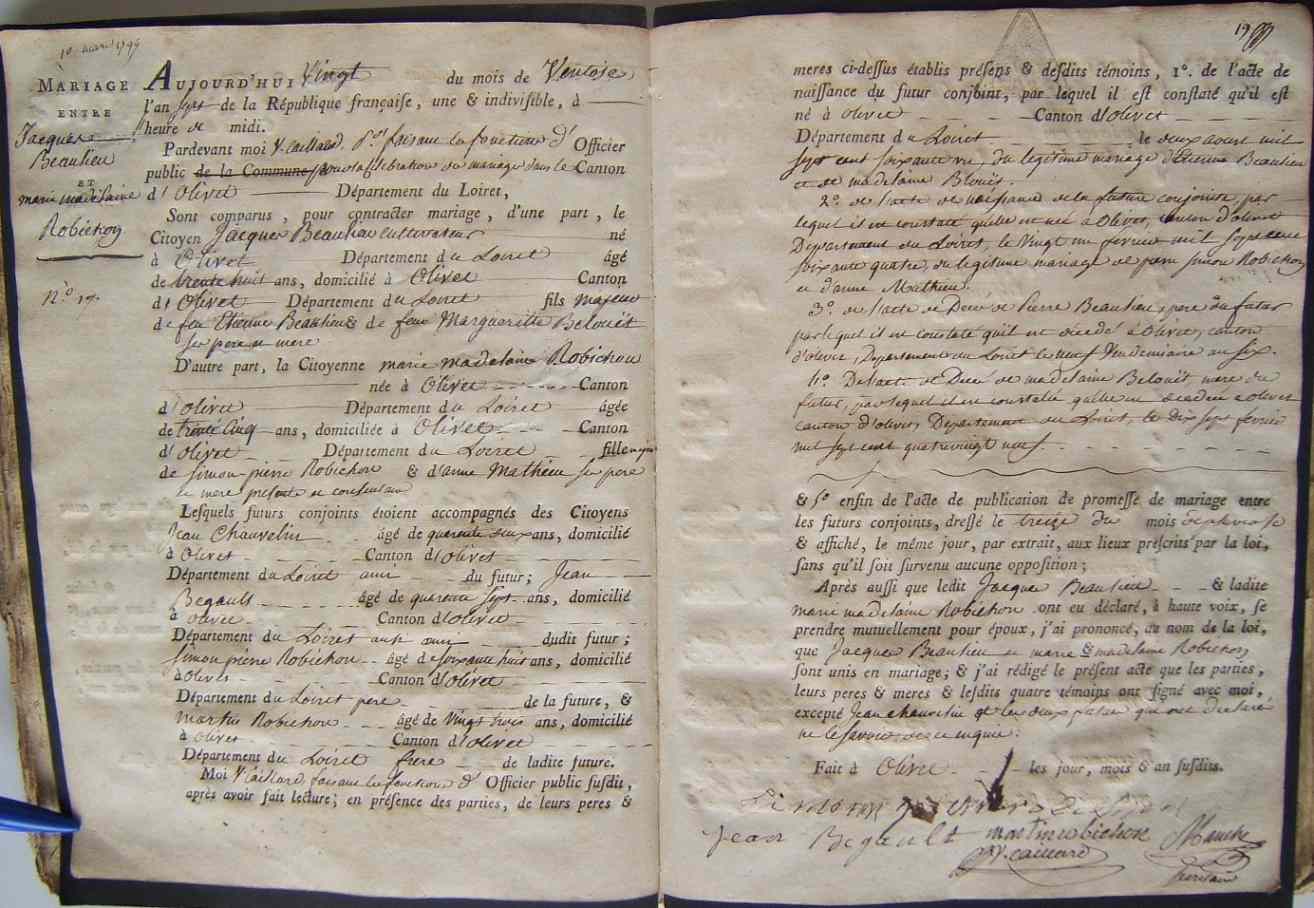 10 mars 1799
MARIAGE
ENTRE
Jacques
Beaulieu
ET
marie madelaine
Robichon
N.º 17.
AUJOURD'HUI Vingt du mois de Ventose
l'an sept de la République française, une & indivisible, à
heure de midi.
Pardevant moi V. Caillard, faisant la fonction d' Officier
public de la Commune pour la célébration du mariage dans le Canton
d'Olivet Département du Loiret,
Sont comparus, pour contracter mariage, d'une part, le
Citoyen Jacques Beaulieu cultivateur né
à Olivet Département du Loiret âgé
de trente huit ans, domicilié à Olivet Canton
d'Olivet Département du Loiret fils majeur
de feu Etienne Beaulieu & de feue Margueritte Belouët
ses pere et mere
D'autre part, la Citoyenne marie madelaine Robichon
née à Olivet Canton
d'olivet Département du Loiret âgée
de trente Cinq ans, domiciliée à Olivet Canton
d'olivet Département du Loiret fille
de simon pierre Robichon & d'anne Mathieu ses pere
et mere presente et consentans
Lesquels futurs conjoints étoient accompagnés des Citoyens
Jean Chauvelin âgé de quarente deux ans, domicilié
à Olivet Canton d'olivet
Département du Loiret ami du futur; Jean
Begault âgé de quarente sept ans, domicilié
à olivet Canton d'olivet
Département du Loiret aussi ami dudit futur;
simon pierre Robichon âgé de soixante huit ans, domicilié
à olivet Canton d'olivet
Département du Loiret pere de la future, &
martin Robichon âgé de Vingt trois ans, domicilié
à olivet Canton d'olivet
Département du Loiret frere de ladite future.
Moi V Caillard faisant la fonction d' Officier public susdit,
après avoir fait lecture; en présence des parties, de leurs peres &
19
meres ci-dessus établis présens & desdits témoins, 1º. de l'acte de
naissance du futur conjoint, par lequel il est constaté qu'il est
né à olivet Canton d'olivet
Département du Loiret le deux aoust mil
sept cent soixante un, du legitime mariage d'Etienne Beaulieu
et de madelaine Blouët.
2º. de l'acte de naissance de la future conjointe, par
lequel il est constaté qu'elle est née à Olivet, canton d'olivet
Departement du Loiret, le Vingt un fevrier mil sept cent
soixante quatre, du legitime mariage de pierre simon Robichon
et d'anne Mathieu.
3º. de l'acte de Decé de Pierre Beaulieu, pere du futur
par lequel il est constaté qu'il est décédé à Olivet, canton
d'olivet, Departement du Loiret le neuf Vendemiaire an six.
4º. De l'acte de Decé de madelaine Belouët, mere du
futur, par lequel il est constaté qu'elle est decedée a olivet
canton d'olivet, Departement du Loiret, le dix sept fevrier
mil sept cent quatrevingt neuf
& 5º enfin de l'acte de publication de promesse de mariage entre
les futurs conjoints, dressé le treize du mois
& affiché, le même jour, par extrait, aux lieux prescrits par la loi,
sans qu'il soit survenu aucune opposition;
Après aussi que ledit Jacque Beaulieu & ladite
marie madelaine Robichon ont eu déclaré, à haute voix, se
prendre mutuellement pour époux, j'ai prononcé, au nom de la loi,
que Jacque Beaulieu et marie & madelaine Robichon
sont unis en mariage; & j'ai rédigé le présent acte que les parties,
leurs peres & meres & lesdits quatre témoins ont signé avec moi,
excepté Jean chauvelin et les deux futur qui ont déclaré
ne le savoir, de ce enquis.
Fait à Olivet les jour, mois & an susdits.
Jean Begault martin robichon
V. caillard